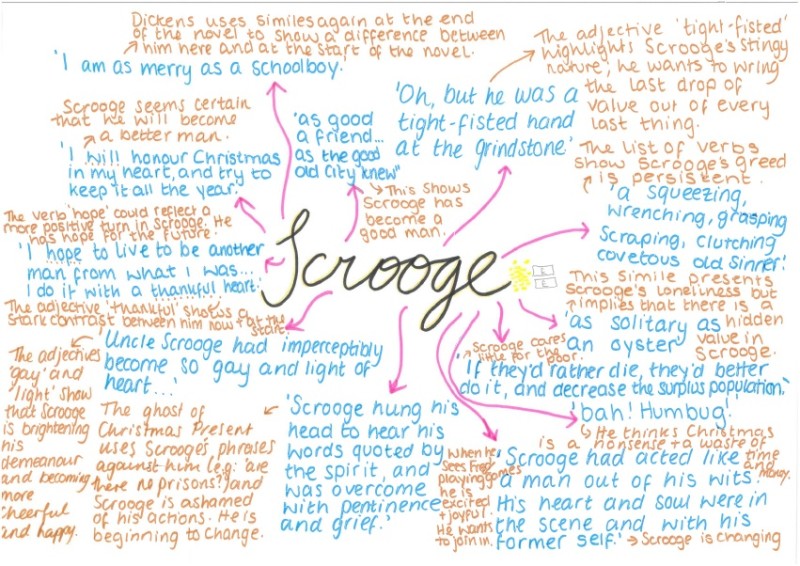 Dickens uses similes again at the end
of the novel to show a difference between
him here and at the start of the novel.
'I am as merry as a schoolboy.'
Scrooge seems certain
that he will become
a better man.
'I will honour Christmas
in my heart, and try to
keep it all the year.'
'as good
a friend...
as the good
old City knew"
This shows
Scrooge has
become a
good man.
'Oh, but he was a
tight-fisted hand
at the grindstone.'
The adjective 'tight-fisted'
highlights Scrooge's stingy
nature; he wants to wring
the last drop of
value out of every
last thing.
The list of verbs
show Scrooge's greed
is persistent.
'a squeezing,
wrenching, grasping
scraping, clutching
covetous old sinner.'
The verb 'hope' could reflect a
more positive turn in Scrooge. He
has hope for the future.
'I hope to live to be another
man from what I was...
I do it with a thankful heart.'
The adjective 'thankful' shows a
stark contrast between him now + at the
start.
Scrooge
This simile presents
Scrooge's loneliness but
implies that there is a
hidden
value in
Scrooge.
'as solitary as
an oyster'
'Uncle Scrooge had imperceptibly
become so gay and light of
heart...'
The adjectives
'gay' and
'light' show
that Scrooge
is brightening
his
demeanour
and becoming
more
cheerful
and happy.
The ghost of
Christmas Present
uses Scrooge's phrases
against him (e.g: 'are
there no prisons?') and
Scrooge is ashamed
of his actions. He is
beginning to change.
'Scrooge hung his
head to hear his
words quoted by
the spirit, and
was overcome
with pentinence
and grief.'
Scrooge cares
little for the poor.
'If they'd rather die, they'd better
do it, and decrease the surplus population.'
'bah! Humbug!'
He thinks Christmas
is a nonsense + a waste of
time
and
money.
When he
sees Fred
playing games
he is
excited
+ joyful.
He wants
to join in.
'Scrooge had acted like
a man out of his wits.
His heart and soul were in
the scene and with his
former self.' → Scrooge is changing